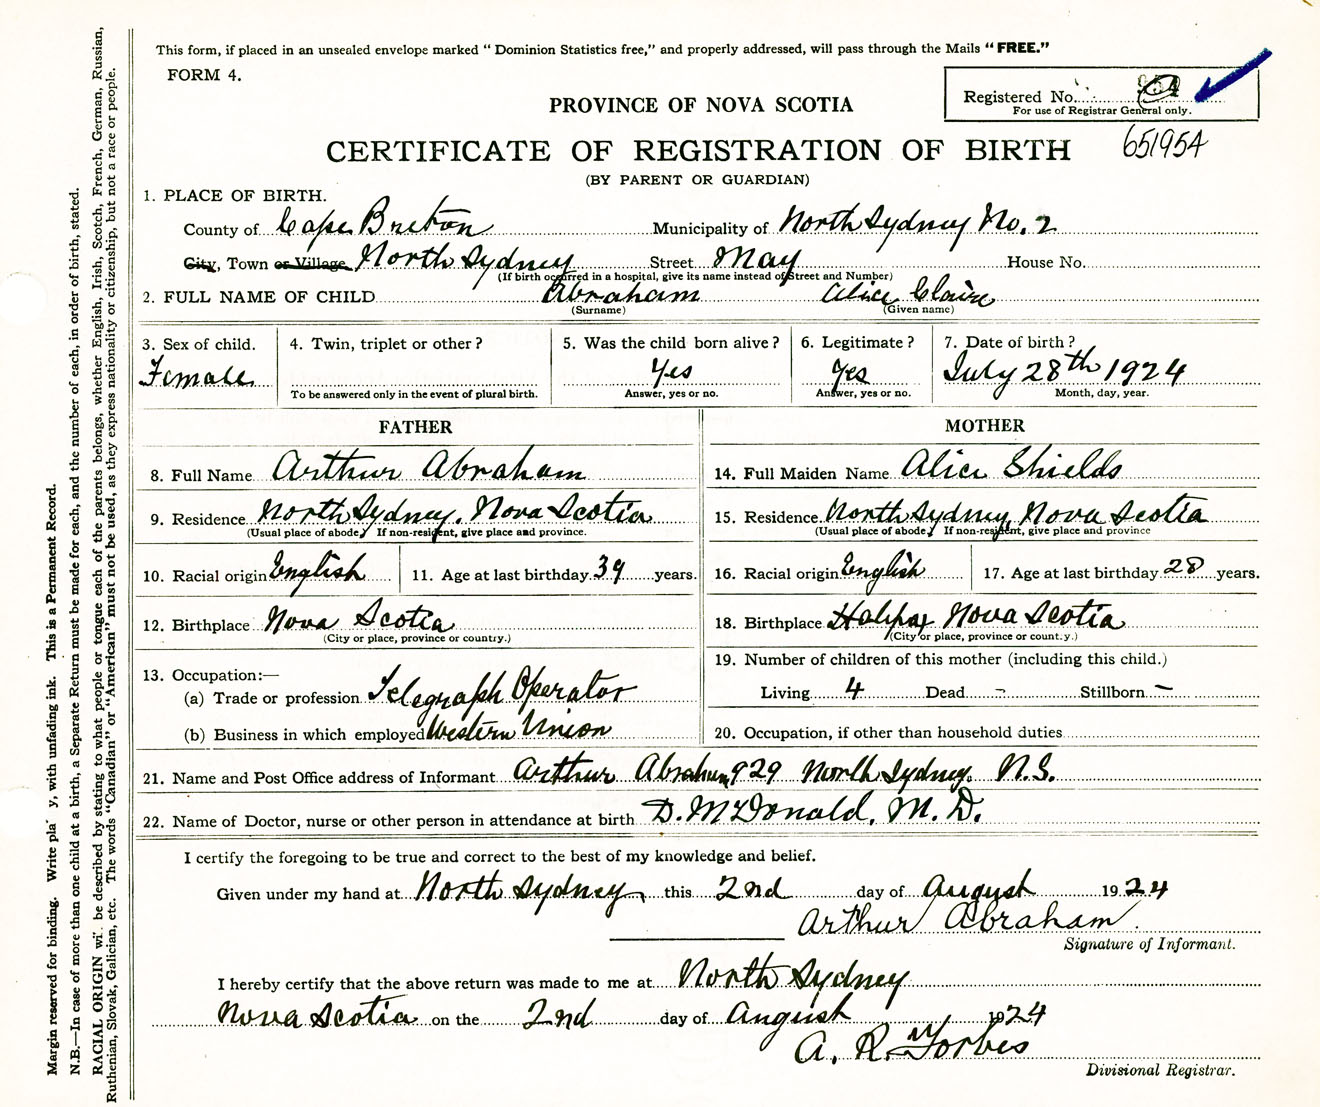 This form, if placed in an unsealed envelope marked "Dominion Statistics free," and properly addressed, will pass through the Mails "FREE."
FORM 4.
Registered No.
For use of Registrar General only.
PROVINCE OF NOVA SCOTIA
CERTIFICATE OF REGISTRATION OF BIRTH 651954
(BY PARENT OR GUARDIAN)
1. PLACE OF BIRTH.
County of Cape Breton Municipality of North Sydney No. 2
City, Town or Village North Sydney Street May House No.
(If birth occurred in a hospital, give its name instead of Street and Number)
2. FULL NAME OF CHILD Abraham Alice Claire
(Surname) (Given name)
3. Sex of child. 4. Twin, triplet or other? 5. Was the child born alive? 6. Legitimate? 7. Date of birth?
Female Yes Yes July 28th 1924
To be answered only in the event of plural birth. Answer, yes or no. Answer, yes or no. Month, day, year.
FATHER MOTHER
8. Full Name Arthur Abraham 14. Full Maiden Name Alice Shields
9. Residence North Sydney, Nova Scotia 15. Residence North Sydney Nova Scotia
(Usual place of abode, If non-resident, give place and province. (Usual place of abode, If non-resident, give place and province
10. Racial origin English 11. Age at last birthday 39 years. 16. Racial origin English 17. Age at last birthday 28 years.
12. Birthplace Nova Scotia 18. Birthplace Halifax Nova Scotia
(City or place, province or country.) (City or place, province or count.y.)
13. Occupation:— 19. Number of children of this mother (including this child.)
(a) Trade or profession Telegraph Operator Living 4 Dead - Stillborn -
(b) Business in which employed Western Union 20. Occupation, if other than household duties
21. Name and Post Office address of Informant Arthur Abraham, 929 North Sydney, N.S.
22. Name of Doctor, nurse or other person in attendance at birth D. McDonald, M. D.
I certify the foregoing to be true and correct to the best of my knowledge and belief.
Given under my hand at North Sydney this 2nd day of August 1924
Arthur Abraham.
Signature of Informant.
I hereby certify that the above return was made to me at North Sydney
Nova Scotia on the 2nd day of August 1924
A. R. Forbes
Divisional Registrar.
Margin reserved for binding. Write pla y, with unfading ink. This is a Permanent Record.
N.B.—In case of more than one child at a birth, a Separate Return must be made for each, and the number of each, in order of birth, stated.
RACIAL ORIGIN wi. be described by stating to what people or tongue each of the parents belongs, whether English, Irish, Scotch, French, German, Russian,
Ruthenian, Slovak, Galician, etc. The words "Canadian" or "American" must not be used, as they express nationality or citizenship, but not a race or people.